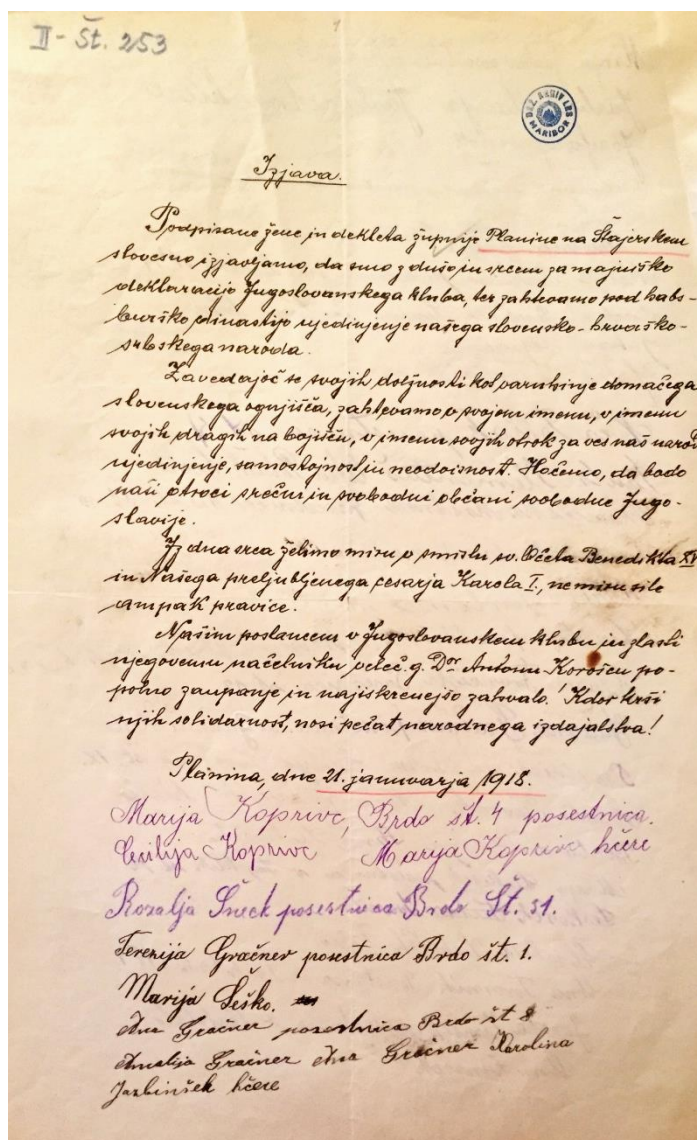 II - Št. 253
1
DEŽ. ARHIV LRS
MARIBOR
Izjava.
Podpisane žene in dekleta župnije Planine na Štajerskem
slovesno izjavljamo, da smo z dušo in srcem za majniško
deklaracijo Jugoslovanskega kluba, ter zahtevamo pod habs-
burško dinastijo ujedinjenje našega slovensko-hrvaško-
srbskega naroda.
Zavedajoč se svojih dolžnosti kot varuhinje domačega
slovenskega ognjišča, zahtevamo v svojem imenu, v imenu
svojih dragih na bojišču, v imenu svojih otrok za ves naš narod
ujedinjenje, samostojnost in neodvisnost. Hočemo, da bodo
naši otroci srečni in svobodni občani svobodne Jugo-
slavije.
Iz dna srca želimo miru v smislu sv. Očeta Benedikta XV
in Našega preljubljenega cesarja Karola I., ne miru sile
ampak pravice.
Našim poslancem v Jugoslovanskem klubu in zlasti
njegovemu načelniku veleč. g. Dor Antonu Korošcu po-
polno zaupanje in najiskrenejšo zahvalo! Kdor krši
njih solidarnost, nosi pečat narodnega izdajalstva!
Planina, dne 21. januvarja 1918.
Marija Koprivc, Brdo št. 4 posestnica.
Cecilija Koprivc Marija Koprivc hčere
Rozalja posestnica Brdo Št. 31.
Terezija Gračner posestnica Brdo št. 1.
Marija Šeško.
Ana Gračner posestnica Brdo št 8
Amalija Gračner Ana Gračner Karolina
Jazbinšek hčere